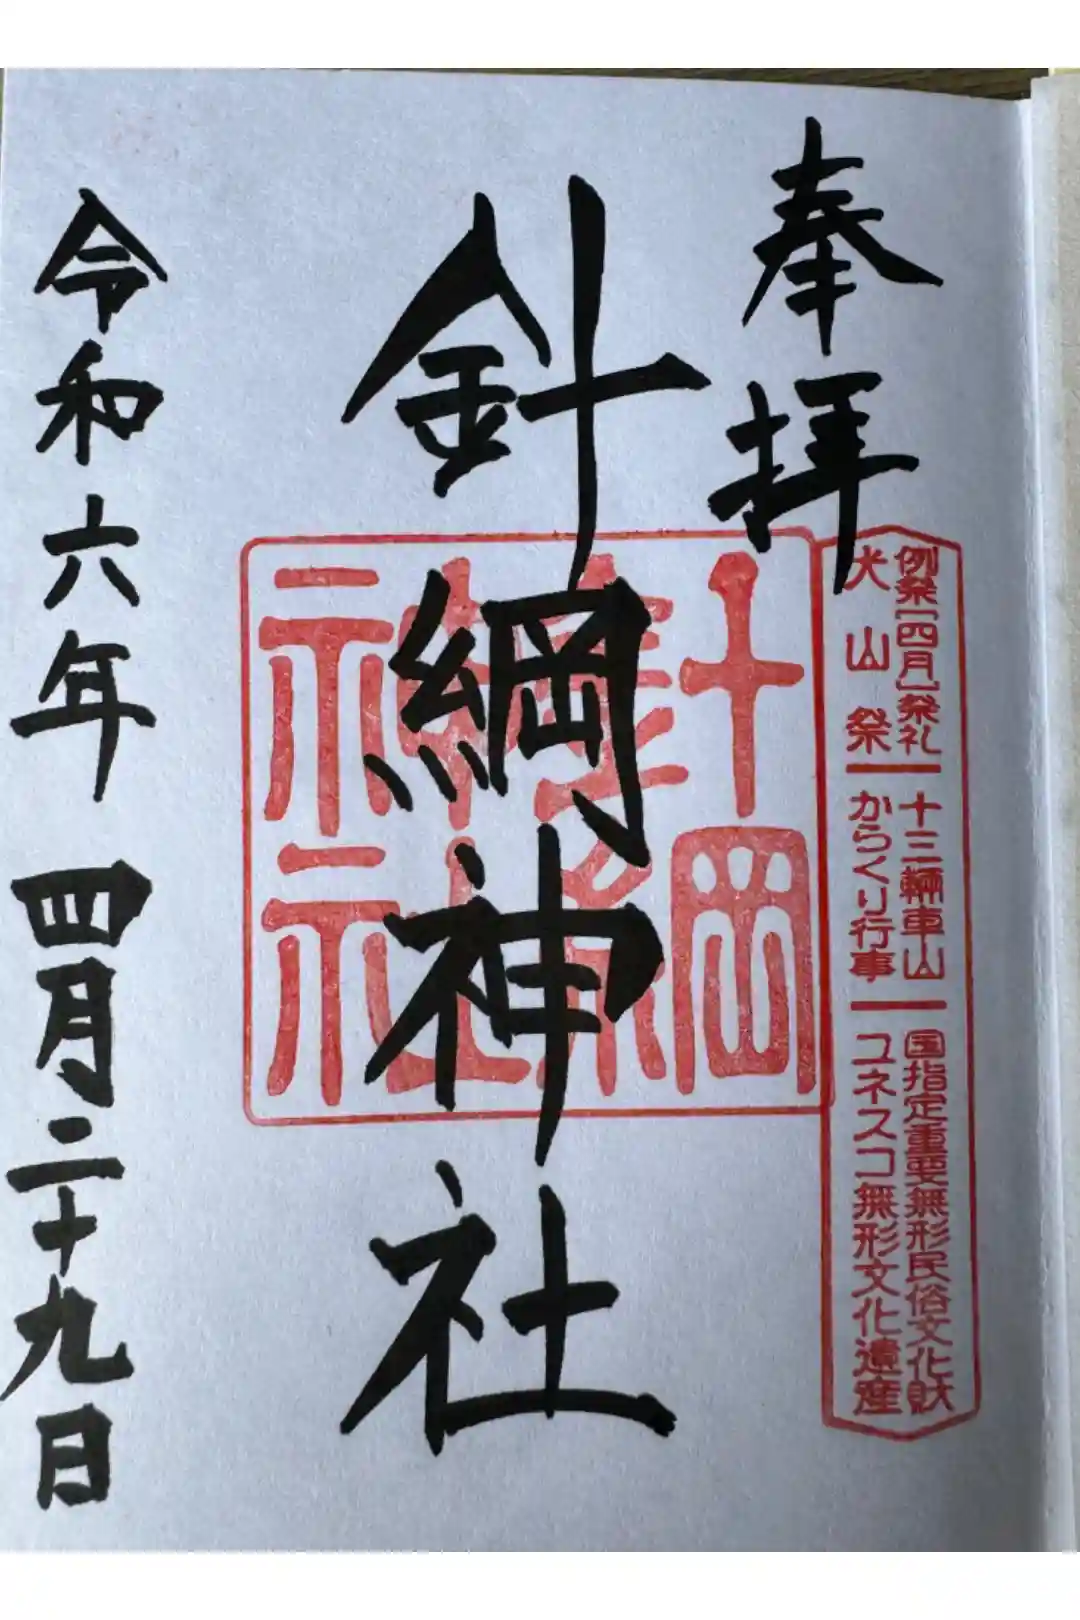 奉拝
例祭[四月]祭礼 十三輛車山 国指定重要無形民俗文化財
犬山祭 からくり行事 ユネスコ無形文化遺産
針綱神社
針綱神社
令和六年 四月二十九日